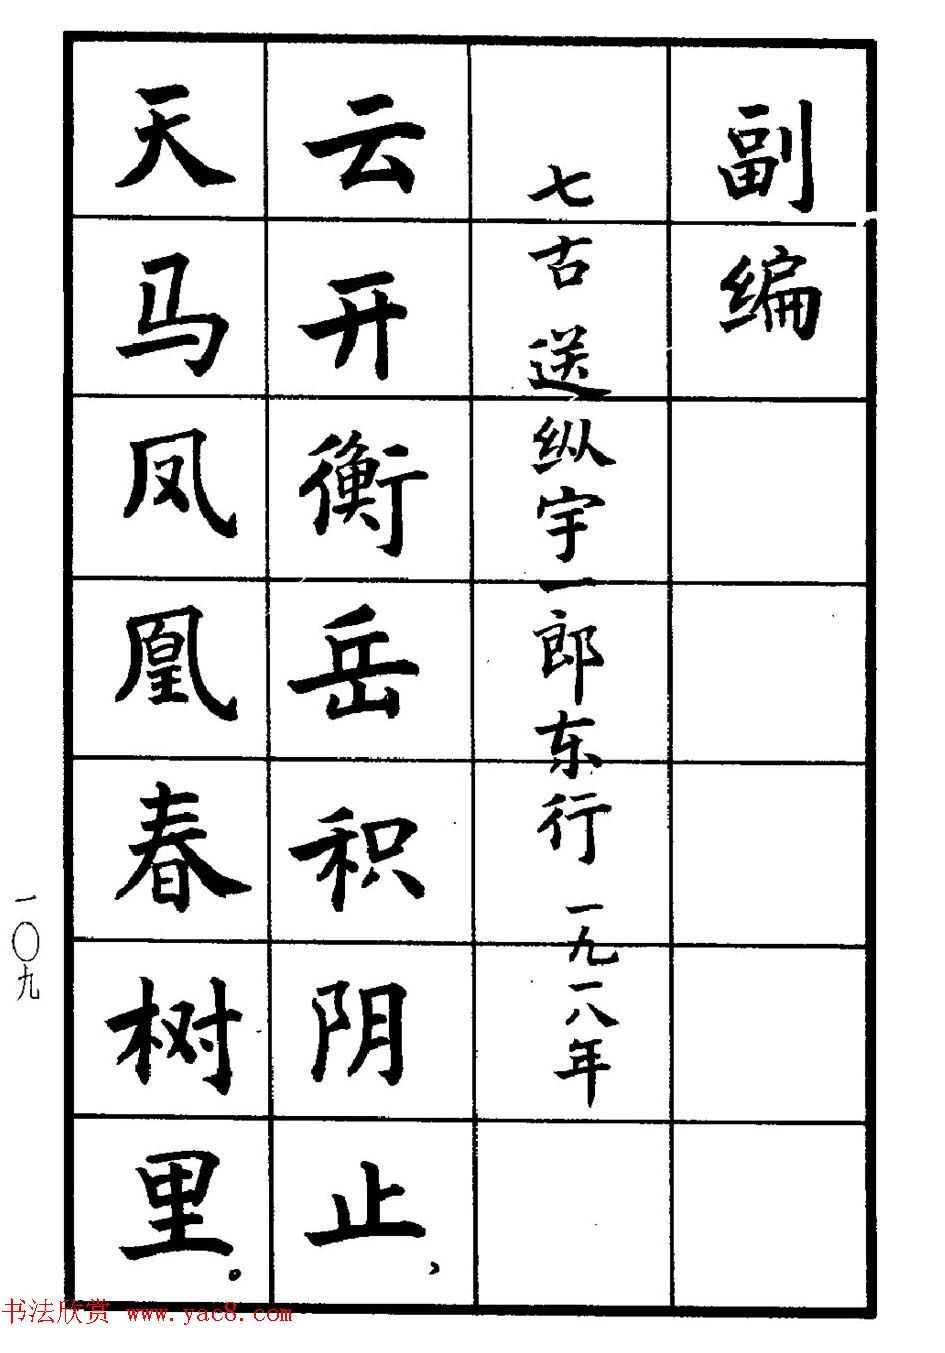 副编
七古 送纵宇一郎东行 一九一八年
云开衡岳积阴止，
天马凤凰春树里。
一〇九
书法欣赏 www.yac8.com